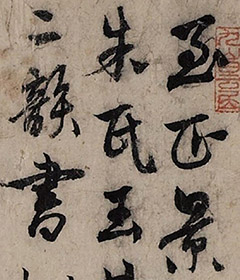 至正景
朱氏玉
二韻書